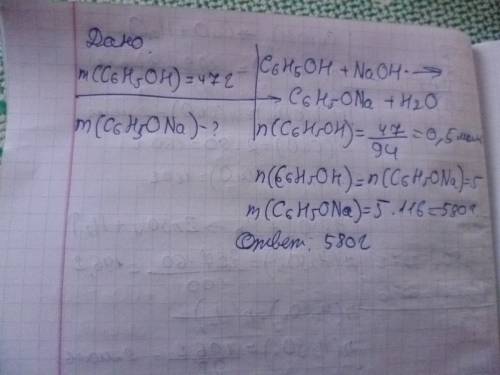 Дано:
m(C6H5OH)=47г
m(C6H5ONa)-?
C6H5OH + NaOH →
→ C6H5ONa + H2O
n(C6H5OH)= 47/94 =0,5 моль
n(C6H5OH)=n(C6H5ONa)=5
m(C6H5ONa)=5·116=580г
Ответ: 580г